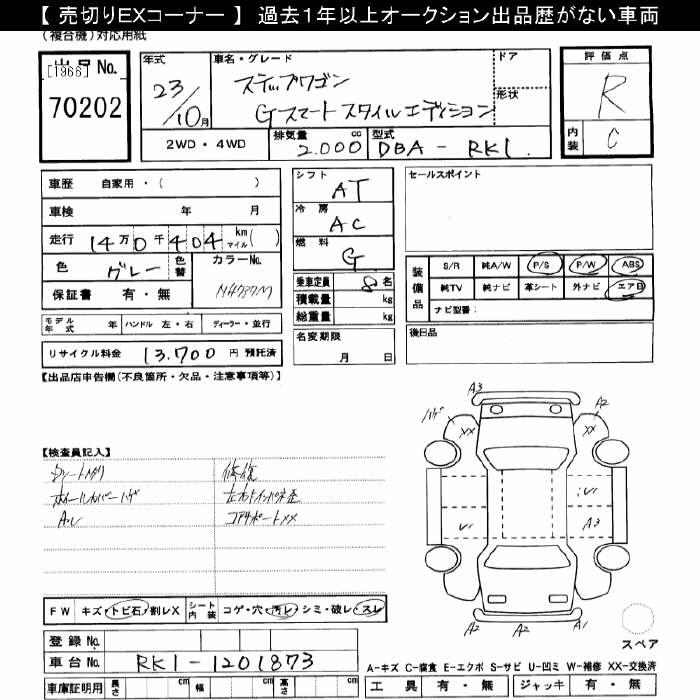 【 売切りEXコーナー 】 過去１年以上オークション出品歴がない車両
(複合機)対応用紙
出品No. [1966]
70202
年式
23/10月
車名・グレード
ステップワゴン
Gスマートスタイルエディション
ドア
形状
2WD・4WD
排気量 2.000 cc
型式 DBA - RK1
評価点
R
内装 C
車歴 自家用・( )
車検 年 月
走行 14万0千404 km マイル( )
色 グレー 色替 カラーNo.
保証書 有・無
モデル年式 年 ハンドル 左・右 ディーラー・並行
リサイクル料金 13.700 円 預託済
シフト AT
冷房 AC
燃料 G
乗車定員 8 名
積載量 kg
総重量 kg
名変期限 月 日
セールスポイント
装備品
S/R 純A/W P/S P/W ABS
純TV 純ナビ 革シート 外ナビ エアB
ナビ型番：
後日品
【出品店申告欄(不良箇所・欠品・注意事項等)】
【検査員記入】
修復
コアサポートXX
A.U
FW キズ・トビ石・割レX シート内装 コゲ・穴・汚レ・シミ・破レ・スレ
登録No.
車台No. RK1-1201873
車庫証明用 長さ cm 幅 cm 高さ cm
A3
ハゲ XX
A2
XX
A3
A2 A2 A1
スペア
A-キズ C-腐食 E-エクボ S-サビ U-凹ミ W-補修 XX-交換済
工具 有・無 ジャッキ 有・無